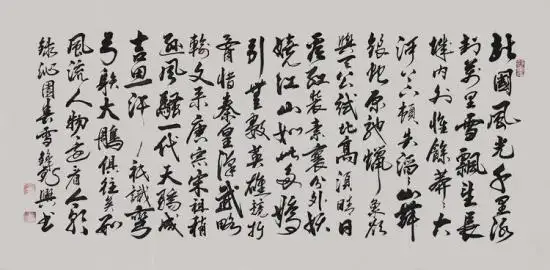 北國風光千里冰
封萬里雪飄望長
城內外惟餘莽々大
河上下頓失滔々山舞
銀蛇原馳蠟象欲
與天公試比高須晴日
看紅裝素裹分外妖
嬈江山如此多嬌
引無數英雄競折
腰惜秦皇漢武略
輸文采唐宗宋祖稍
遜風騷一代天驕成
吉思汗祇識彎
弓射大鵰俱往矣數
風流人物還看今朝
錄沁園春雪龍興書